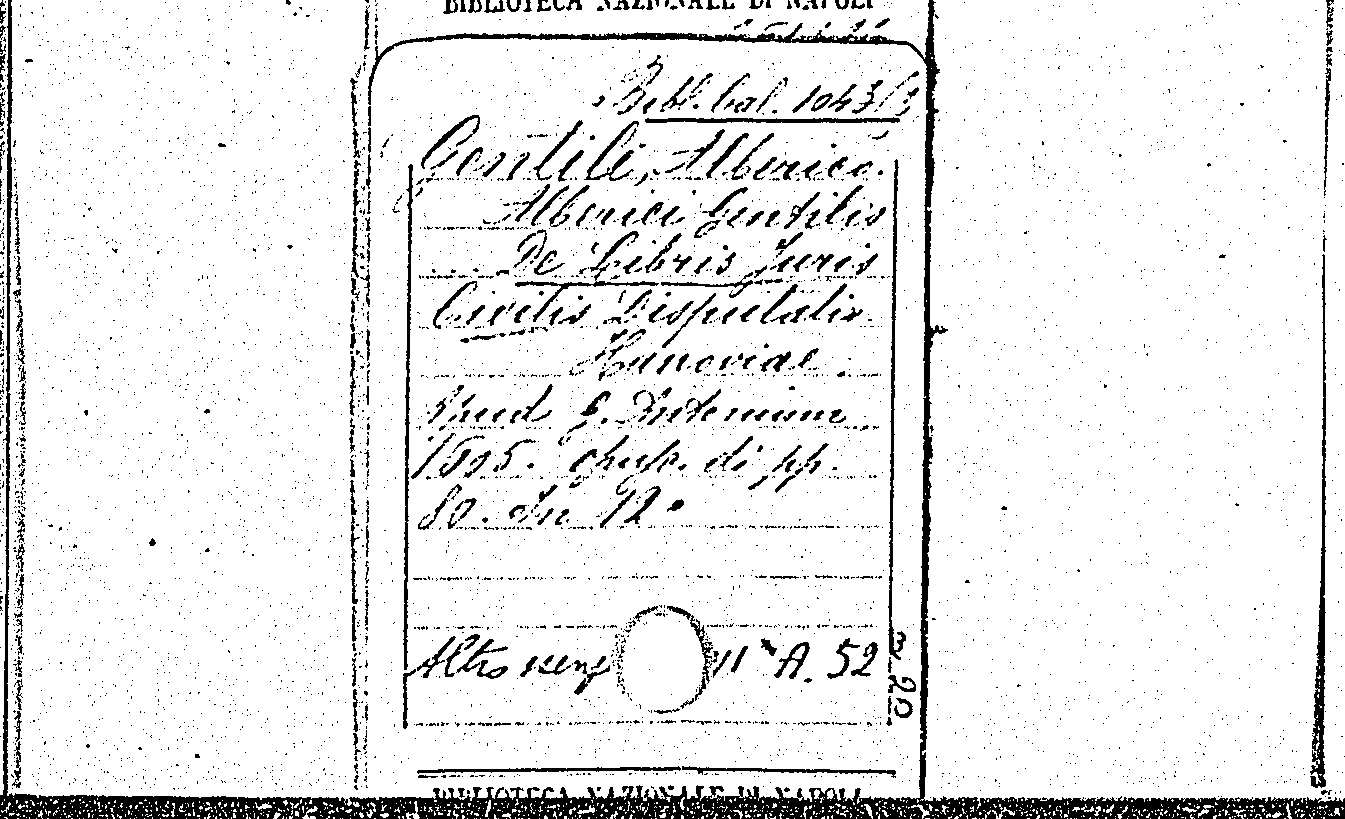 BIBLIOTECA NAZIONALE DI NAPOLI
Bibl. Cal. 1043/3
Gentili, Alberico.
Alberici Gentilis
De Libris Juris
Civilis Disputatio
Hanoviae.
Apud G. Antonium
1605. di pp.
80. In 12°
Altro esemp A. 52
20
BIBLIOTECA NAZIONALE DI NAPOLI